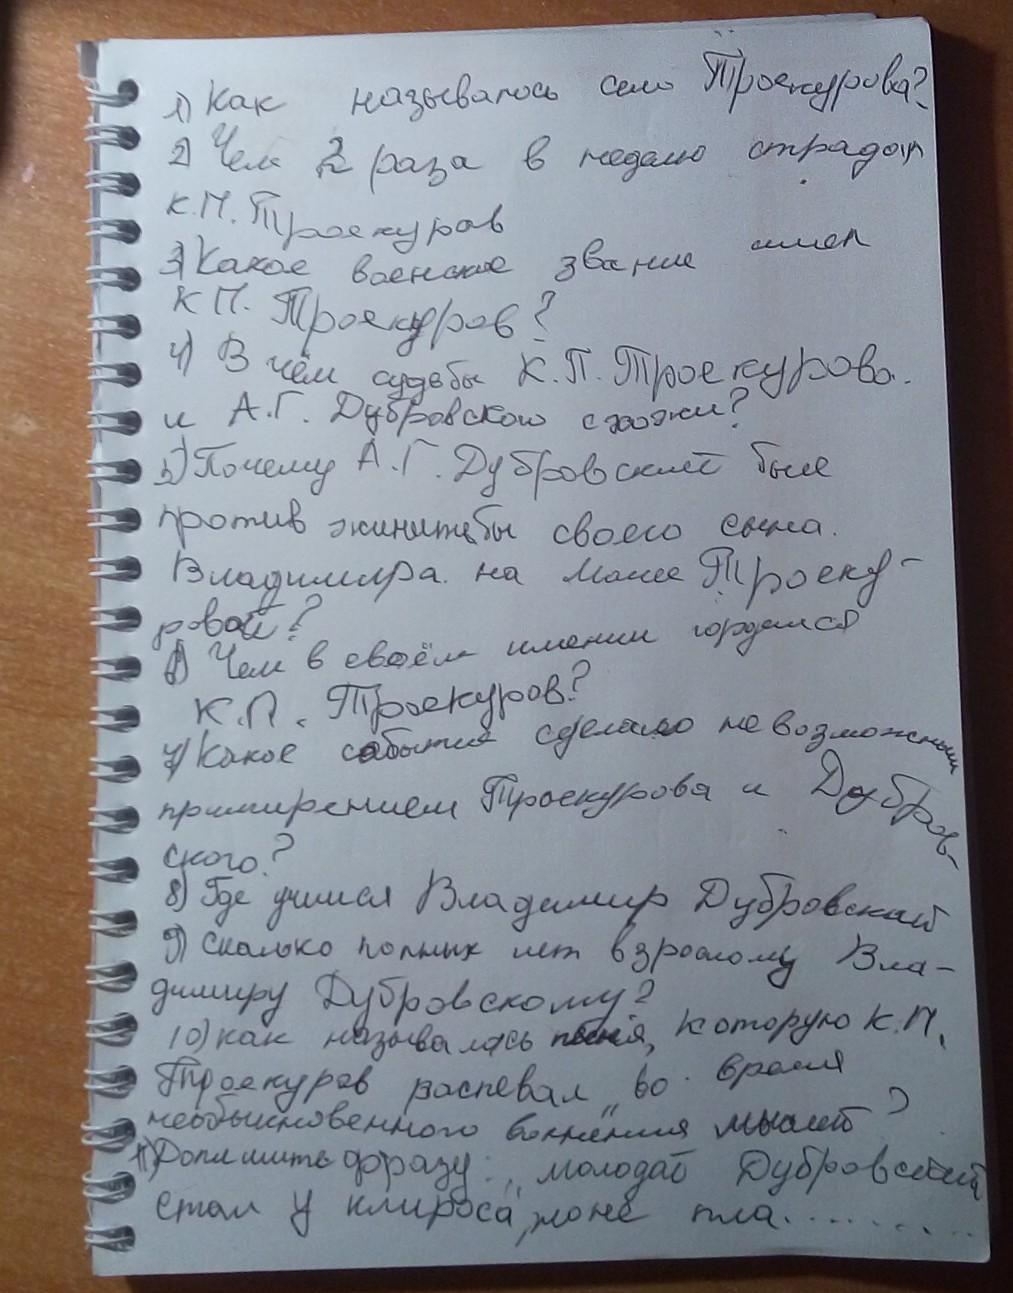 1) Как называлось село Троекурова?
2) Чем 2 раза в неделю страдал
К.П. Троекуров
3) Какое военское звание имел
К П. Троекуров?
4) В чём судьбы К.П. Троекурова.
и А.Г. Дубровского схожи?
5) Почему А.Г. Дубровский был
против жинитьбы своего сына.
Владимира. на Маше Троеку-
ровой?
6) Чем в своём имении гордился
К.П. Троекуров?
7) Какое событие сделало невозможным
примирением Троекурова и Дубров-
ского?
8) Где учился Владимир Дубровский
9) сколько полных лет взрослому Вла-
димиру Дубровскому?
10) как называлась песня, которую К.П.
Троекуров распевал „во время
необыкновенного волнения мыслей?
11) Допишить фразу: „молодой Дубровский
стал у клироса, он не пла.........